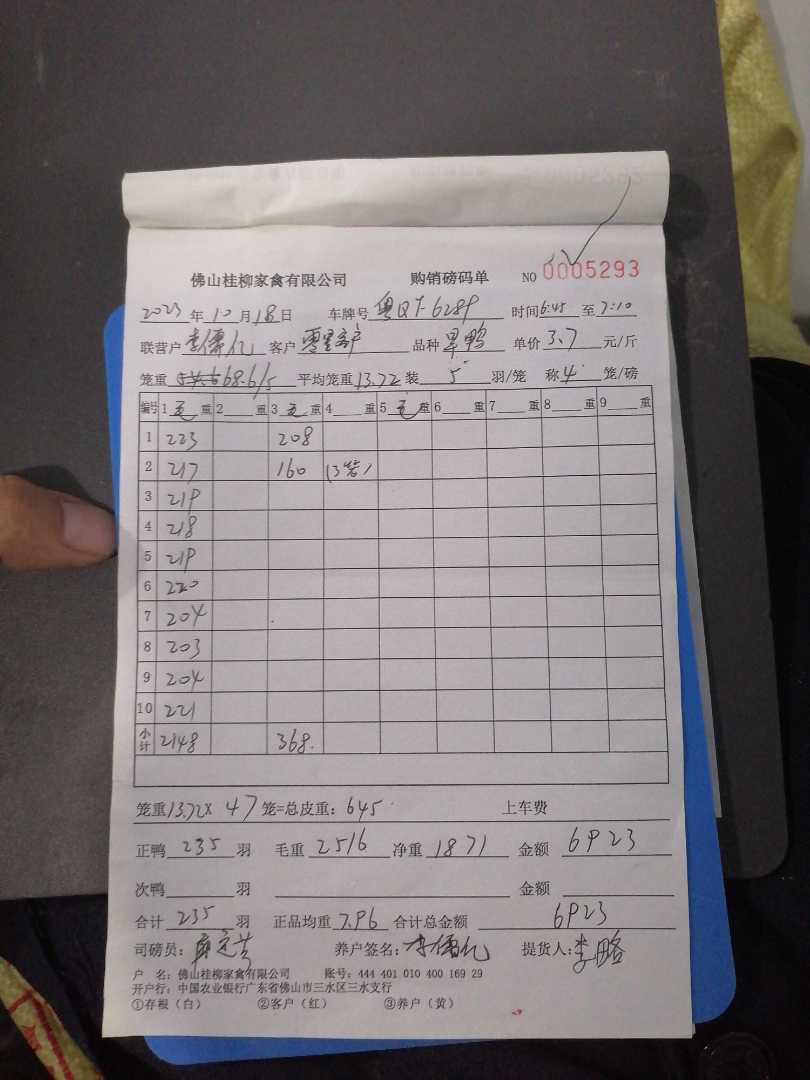 佛山桂柳家禽有限公司 购销磅码单 NO 0005293
2023年10月18日 车牌号 粤QT-6289 时间6:45至7:10
联营户 李儒亿 客户 零星客户 品种 旱鸭 单价 3.7 元/斤
笼重 68.6/5 平均笼重13.72装 5 羽/笼 称4笼/磅
编号 1毛重 2重 3毛重 4重 5毛重 6重 7重 8重 9重
1 223 208
2 217 160 (3笼)
3 219
4 218
5 219
6 220
7 204
8 203
9 204
10 221
小计 2148 368.
笼重13.72× 47笼=总皮重：645 上车费
正鸭 235 羽 毛重 2516 净重 1871 金额 6923
次鸭 羽 金额
合计 235 羽 正品均重 7.96 合计总金额 6923
司磅员： 养户签名：李儒亿 提货人：李略
户 名：佛山桂柳家禽有限公司 账号：444 401 010 400 169 29
开户行：中国农业银行广东省佛山市三水区三水支行
①存根（白） ②客户（红） ③养户（黄）